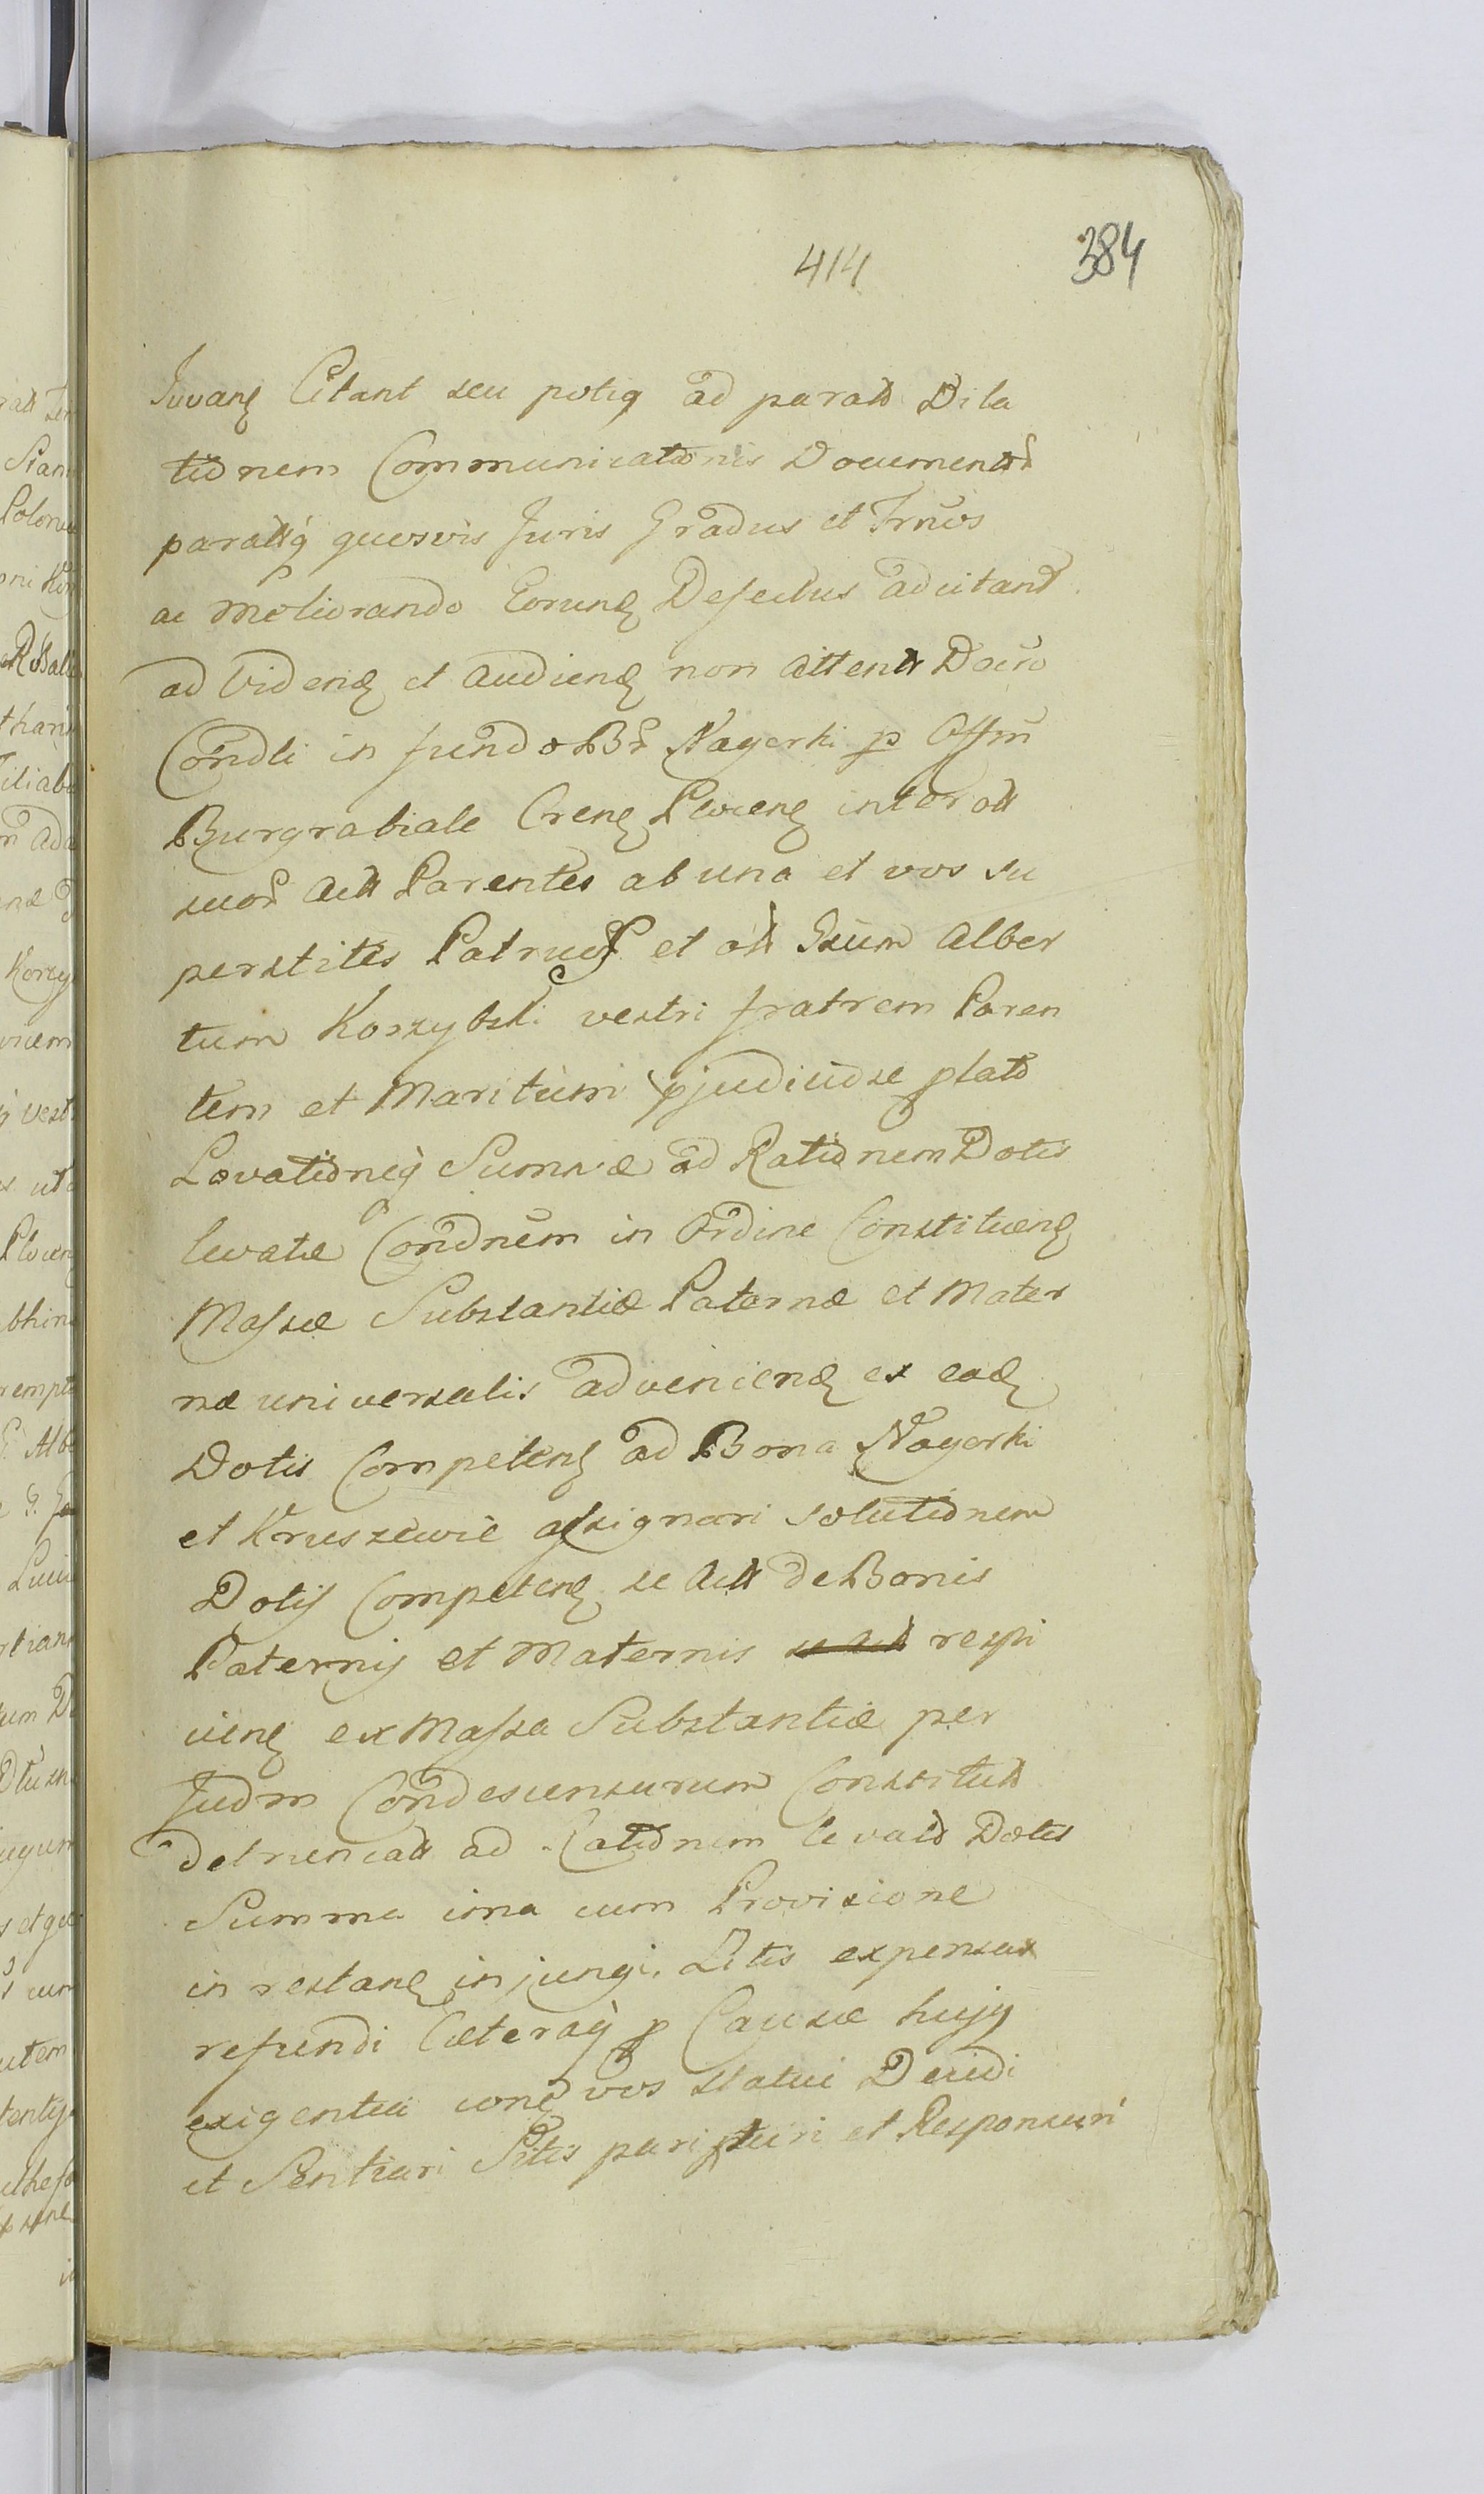 414 384
Juvanȩ Citant seu potiq ad parats Dila
tionem Communicationis Documentor
paratisq quosvis Juris Gradus et Trnos
ac Meliorando Eorunȩ Defectus adcitant
ad Videnȩ et Audienȩ non attento Dacro
Condli in fundo Br Nagorki p Offm
Burgrabiale Crenȩ Plocenȩ inter ols
suor Acts Parentes ab una et vos su
perstites Patruos et ols Gsum Alber
tum Koszybski vestri fratrem Paren
tem et Maritum pjudiciose plato
Levationisq Summæ ad Rationem Dotis
levatæ Condnem in Ordine Constituenȩ
Massæ Substantiæ Paternæ et Mater
næ universalis advenienȩ ex eadȩ
Dotis Competenȩ ad Bona Nagorki
et Kruszewie assignari solutionem
Dotis Competenȩ se Acts de Bonis
Paternis et Maternis se Acts respi
cienȩ ex Massa Substantiæ per
Judm Condescensurum Constituts
detruncats ad Rationem levats Dotis
Summa una cum Provisione
in restanȩ injungi. Litis expensas
refundi Cæteraq p Causæ hujq
exigentia conȩ vos statui Decidi
et Sentiari Sitis parituri et Responsuri